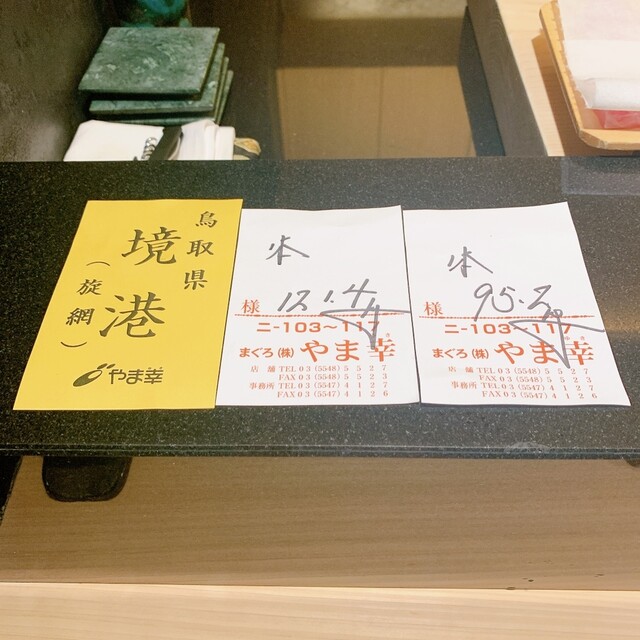 鳥取県
境港
(旋網)
やま幸
本
様 121.4
ニ-103~117
まぐろ(株)やま幸
店舗 TEL 03(5548)5527
FAX 03(5548)5523
事務所 TEL 03(5547)4127
FAX 03(5547)4126
本
様 95.2
ニ-103~117
まぐろ(株)やま幸
店舗 TEL 03(5548)5527
FAX 03(5548)5523
事務所 TEL 03(5547)4127
FAX 03(5547)4126